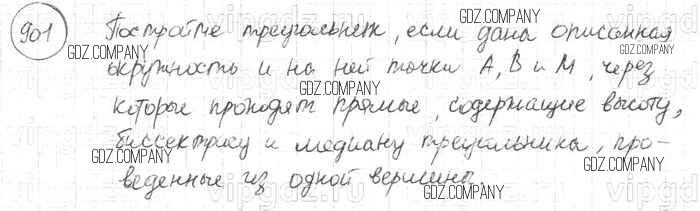 901 Постройте треугольник, если дана описанная
окружность и на ней точки А, В и М, через
которые проходят прямые, содержащие высоту,
биссектрису и медиану треугольника, про-
веденные из одной вершины.
GDZ.COMPANY
GDZ.COMPANY
GDZ.COMPANY
GDZ.COMPANY
GDZ.COMPANY
GDZ.COMPANY
GDZ.COMPANY
GDZ.COMPANY